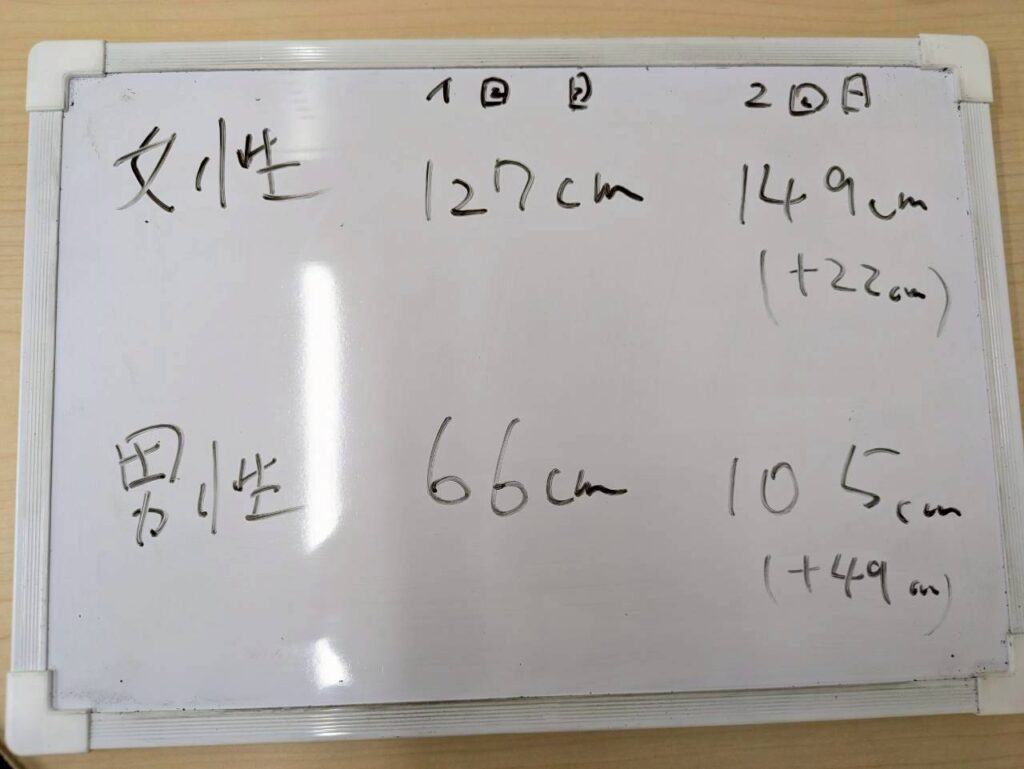 1回目 2回目
女性 127cm 149cm
(+22cm)
男性 66cm 105cm
(+49cm)